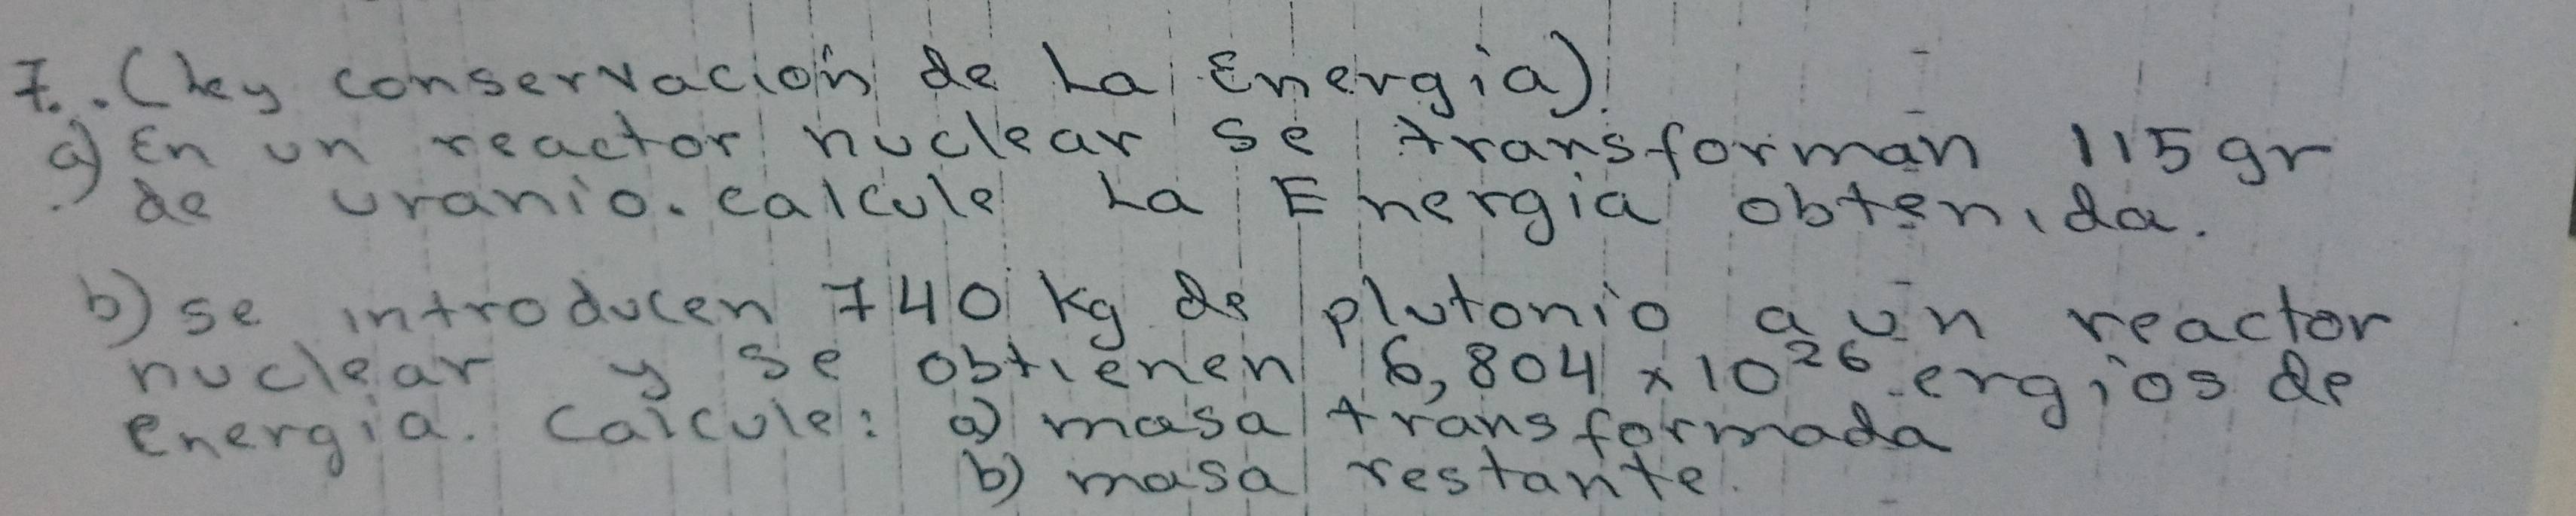 7. (Ley conservación de La Energía).
a) En un reactor nuclear se transforman 115 gr
de uranio. calcule La Energia obtenida.
b) se introducen 740 kg de plutonio a un reactor
nuclear y se obtienen 6,804 x 10²⁶ ergios de
energía. Calcule: a) masa transformada
b) masa restante.